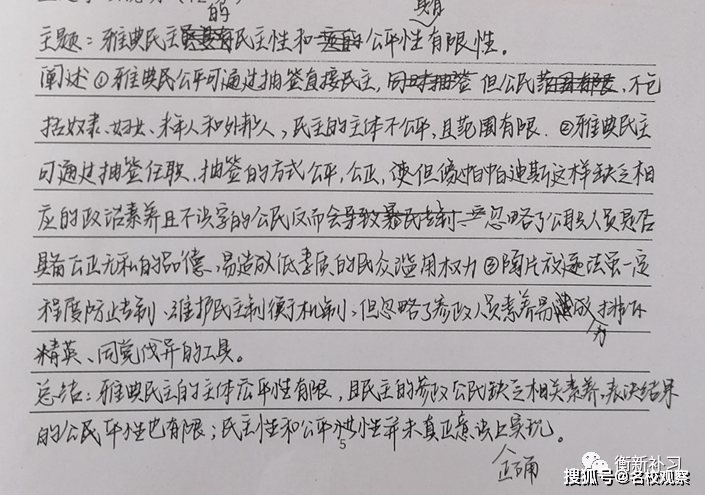 的 具
主题：雅典民主民主性和公平性有限性。
阐述①雅典民公平可通过抽签直接民主，但公民，不包
括奴隶、妇女、未年人和外邦人，民主的主体不公平，且范围有限．②雅典民主
可通过抽签任职，抽签的方式公平，公正，使但像帕帕迪斯这样缺乏相
应的政治素养且不识字的公民反而会忽略了公职人员是否
具备公正无私的品德，易造成低素质的民众滥用权力③陶片放逐法虽一定
程度防止专制、维护民主制衡机制，但忽略了参政人员素养易成为排斥
精英、同党伐异的工具。
总结：雅典民主的主体公平性有限，且民主的参政公民缺乏相关素养，表决结果
的公民平性也有限；民主性和公平性并未真正意义上实现。
5
衡新补习
搜狐号@名校观察